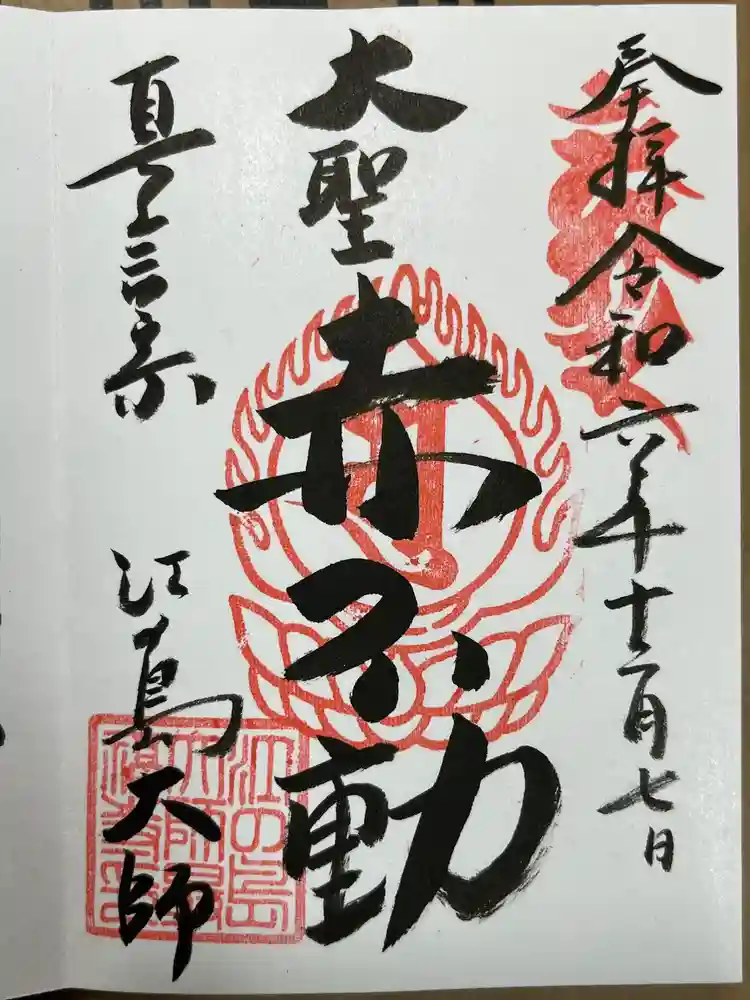 奉拝 令和六年十二月七日
大聖 赤不動
真言宗 江の島大師
江の島
大師最